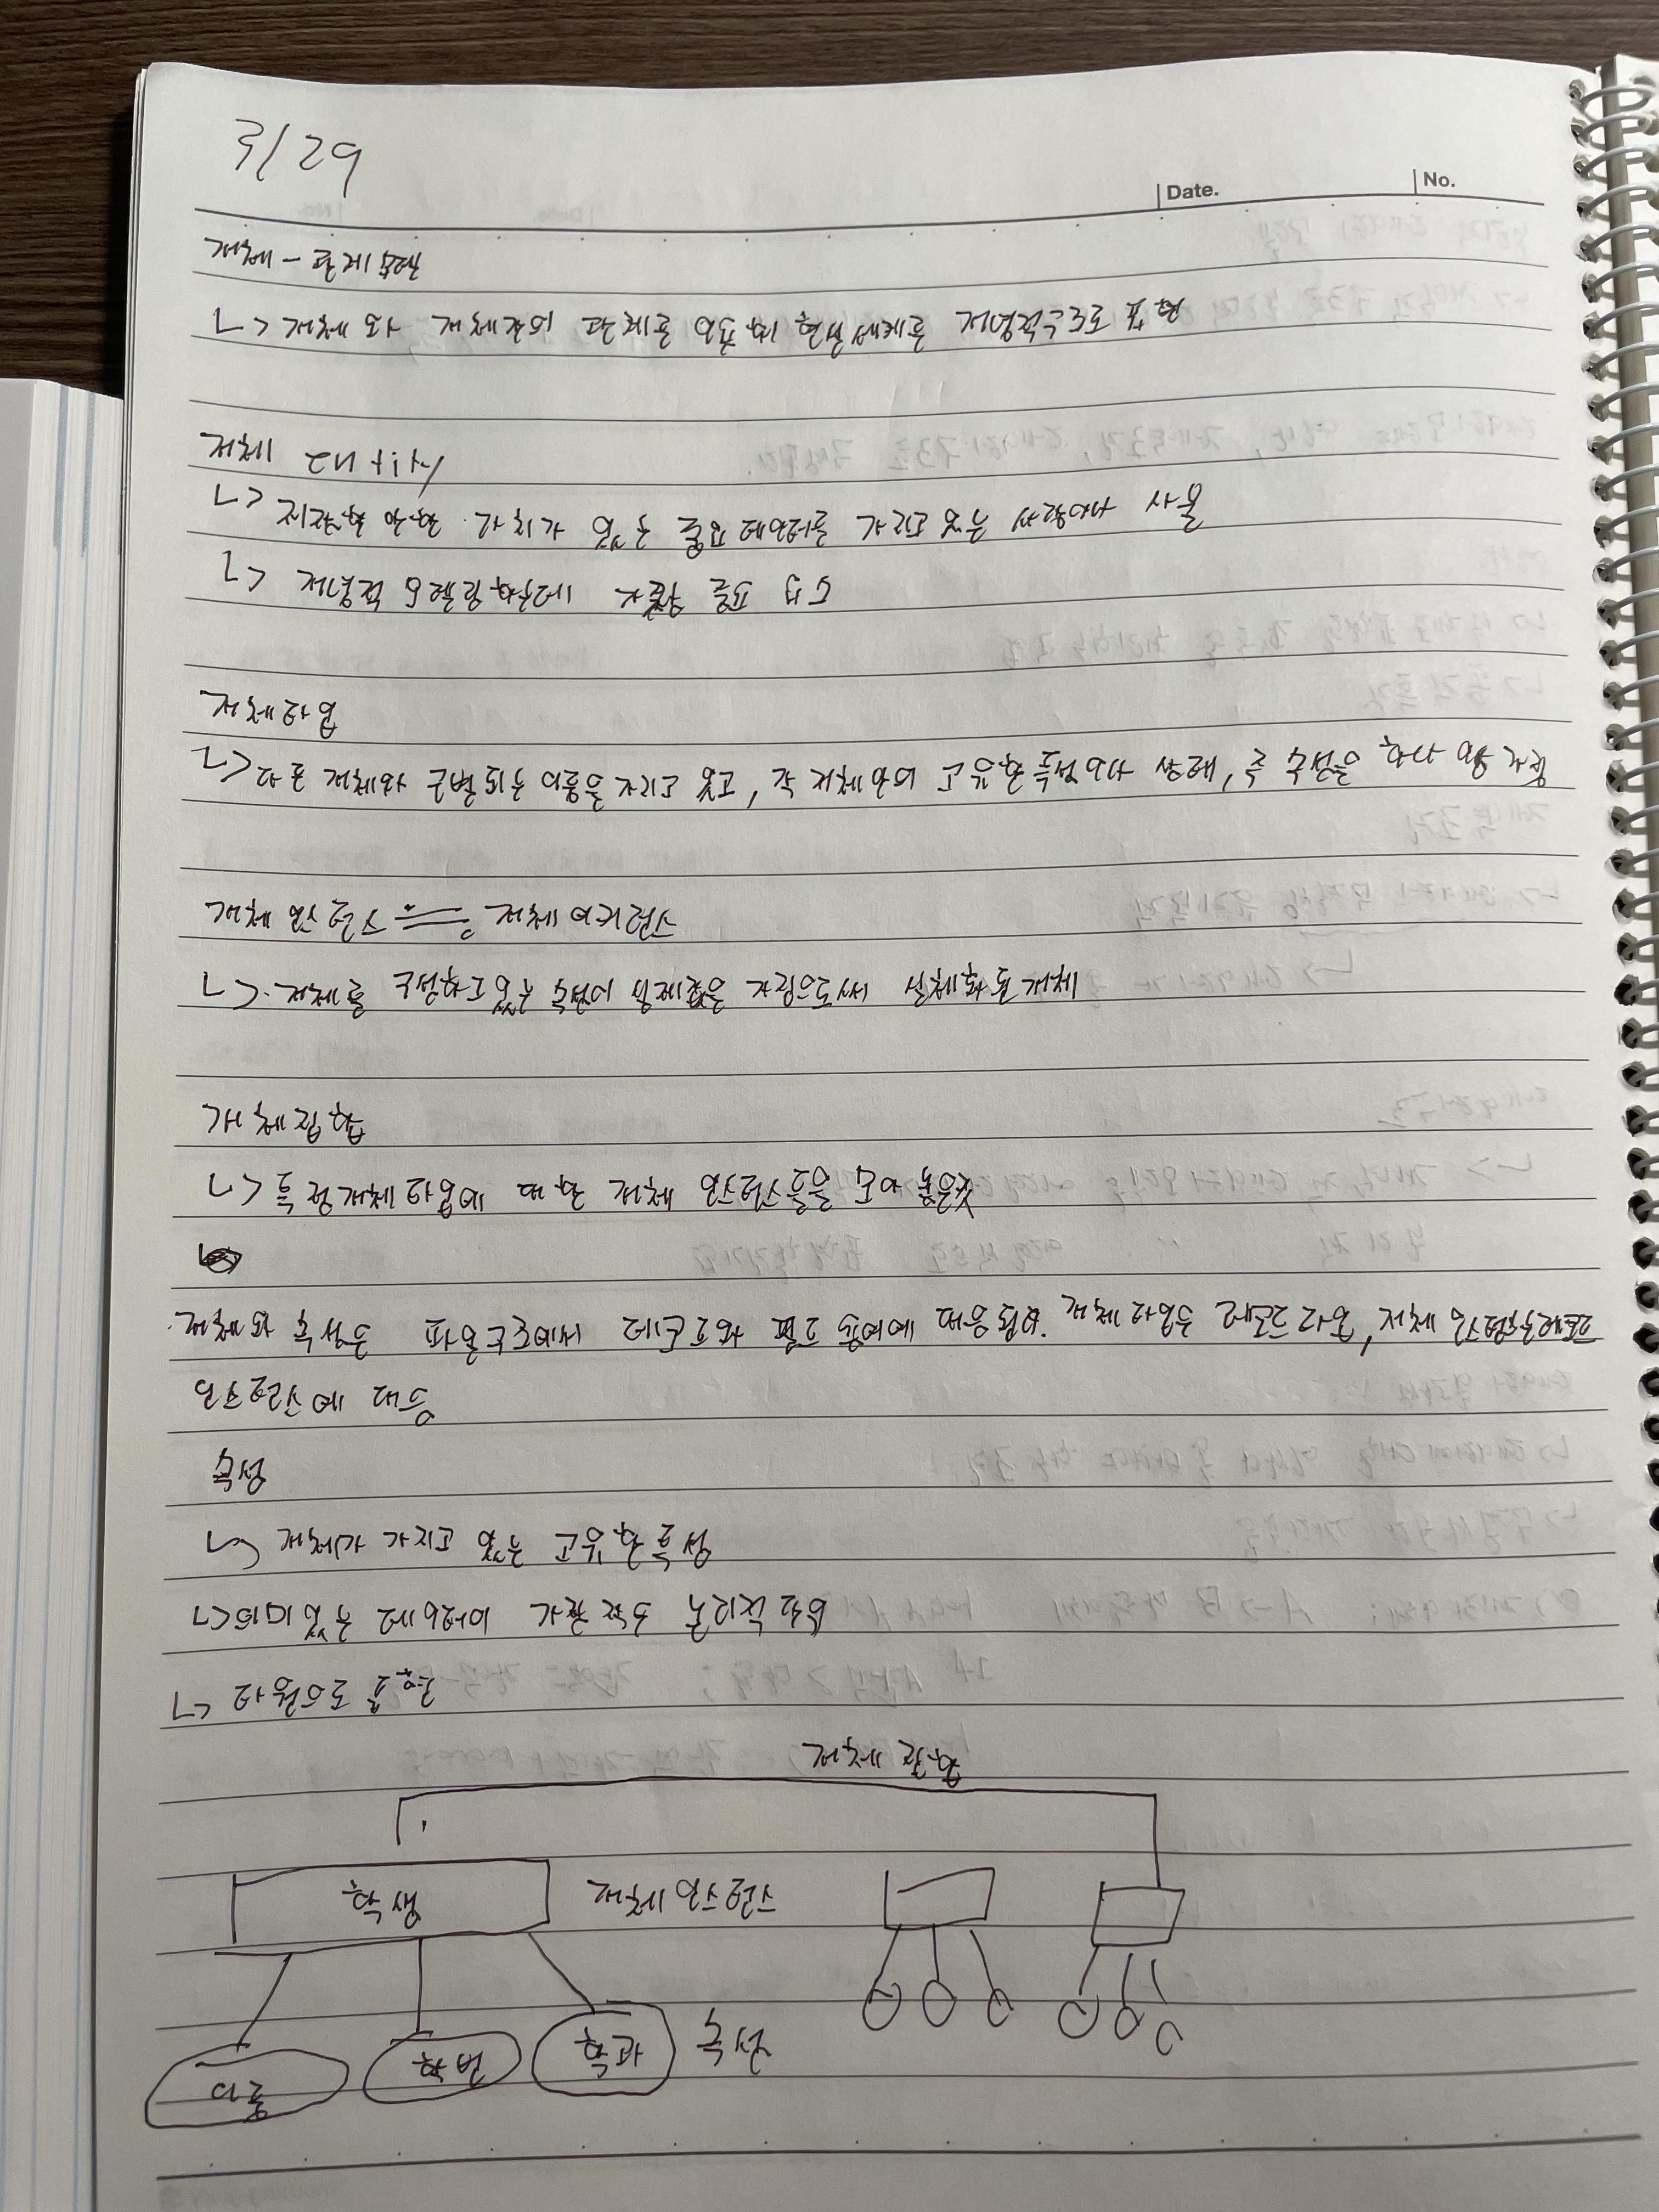 3/29
Date. No.
개체-관계모델
↳ 개체와 개체간의 관계를 이용해 현실세계를 개념적구조로 표현
개체 entity
↳ 저장할 만한 가치가 있는 중요데이터를 가지고 있는 사람이나 사물
↳ 개념적 모델링하는데 가장 중요
개체타입
↳ 다른 개체와 구별되는 이름을 가지고 있고, 각 개체만의 고유한 특성이나 상태, 즉 속성을 하나 이상 가짐
개체 인스턴스 = 개체 어커런스
↳ 개체를 구성하고있는 속성이 실제값을 가짐으로써 실체화된 개체
개체집합
↳ 특정개체 타입에 대한 개체 인스턴스들을 모아 놓은것
개체와 속성은 파일구조에서 레코드와 필드 용어에 대응됨. 개체 타입은 레코드타입, 개체 인스턴스는 레코드
인스턴스에 대응
속성
↳ 개체가 가지고 있는 고유한 특성
↳ 의미있는 데이터의 가장 작은 논리적 단위
↳ 타원으로 표현
개체 집합
학생 개체 인스턴스
이름 학번 학과 속성